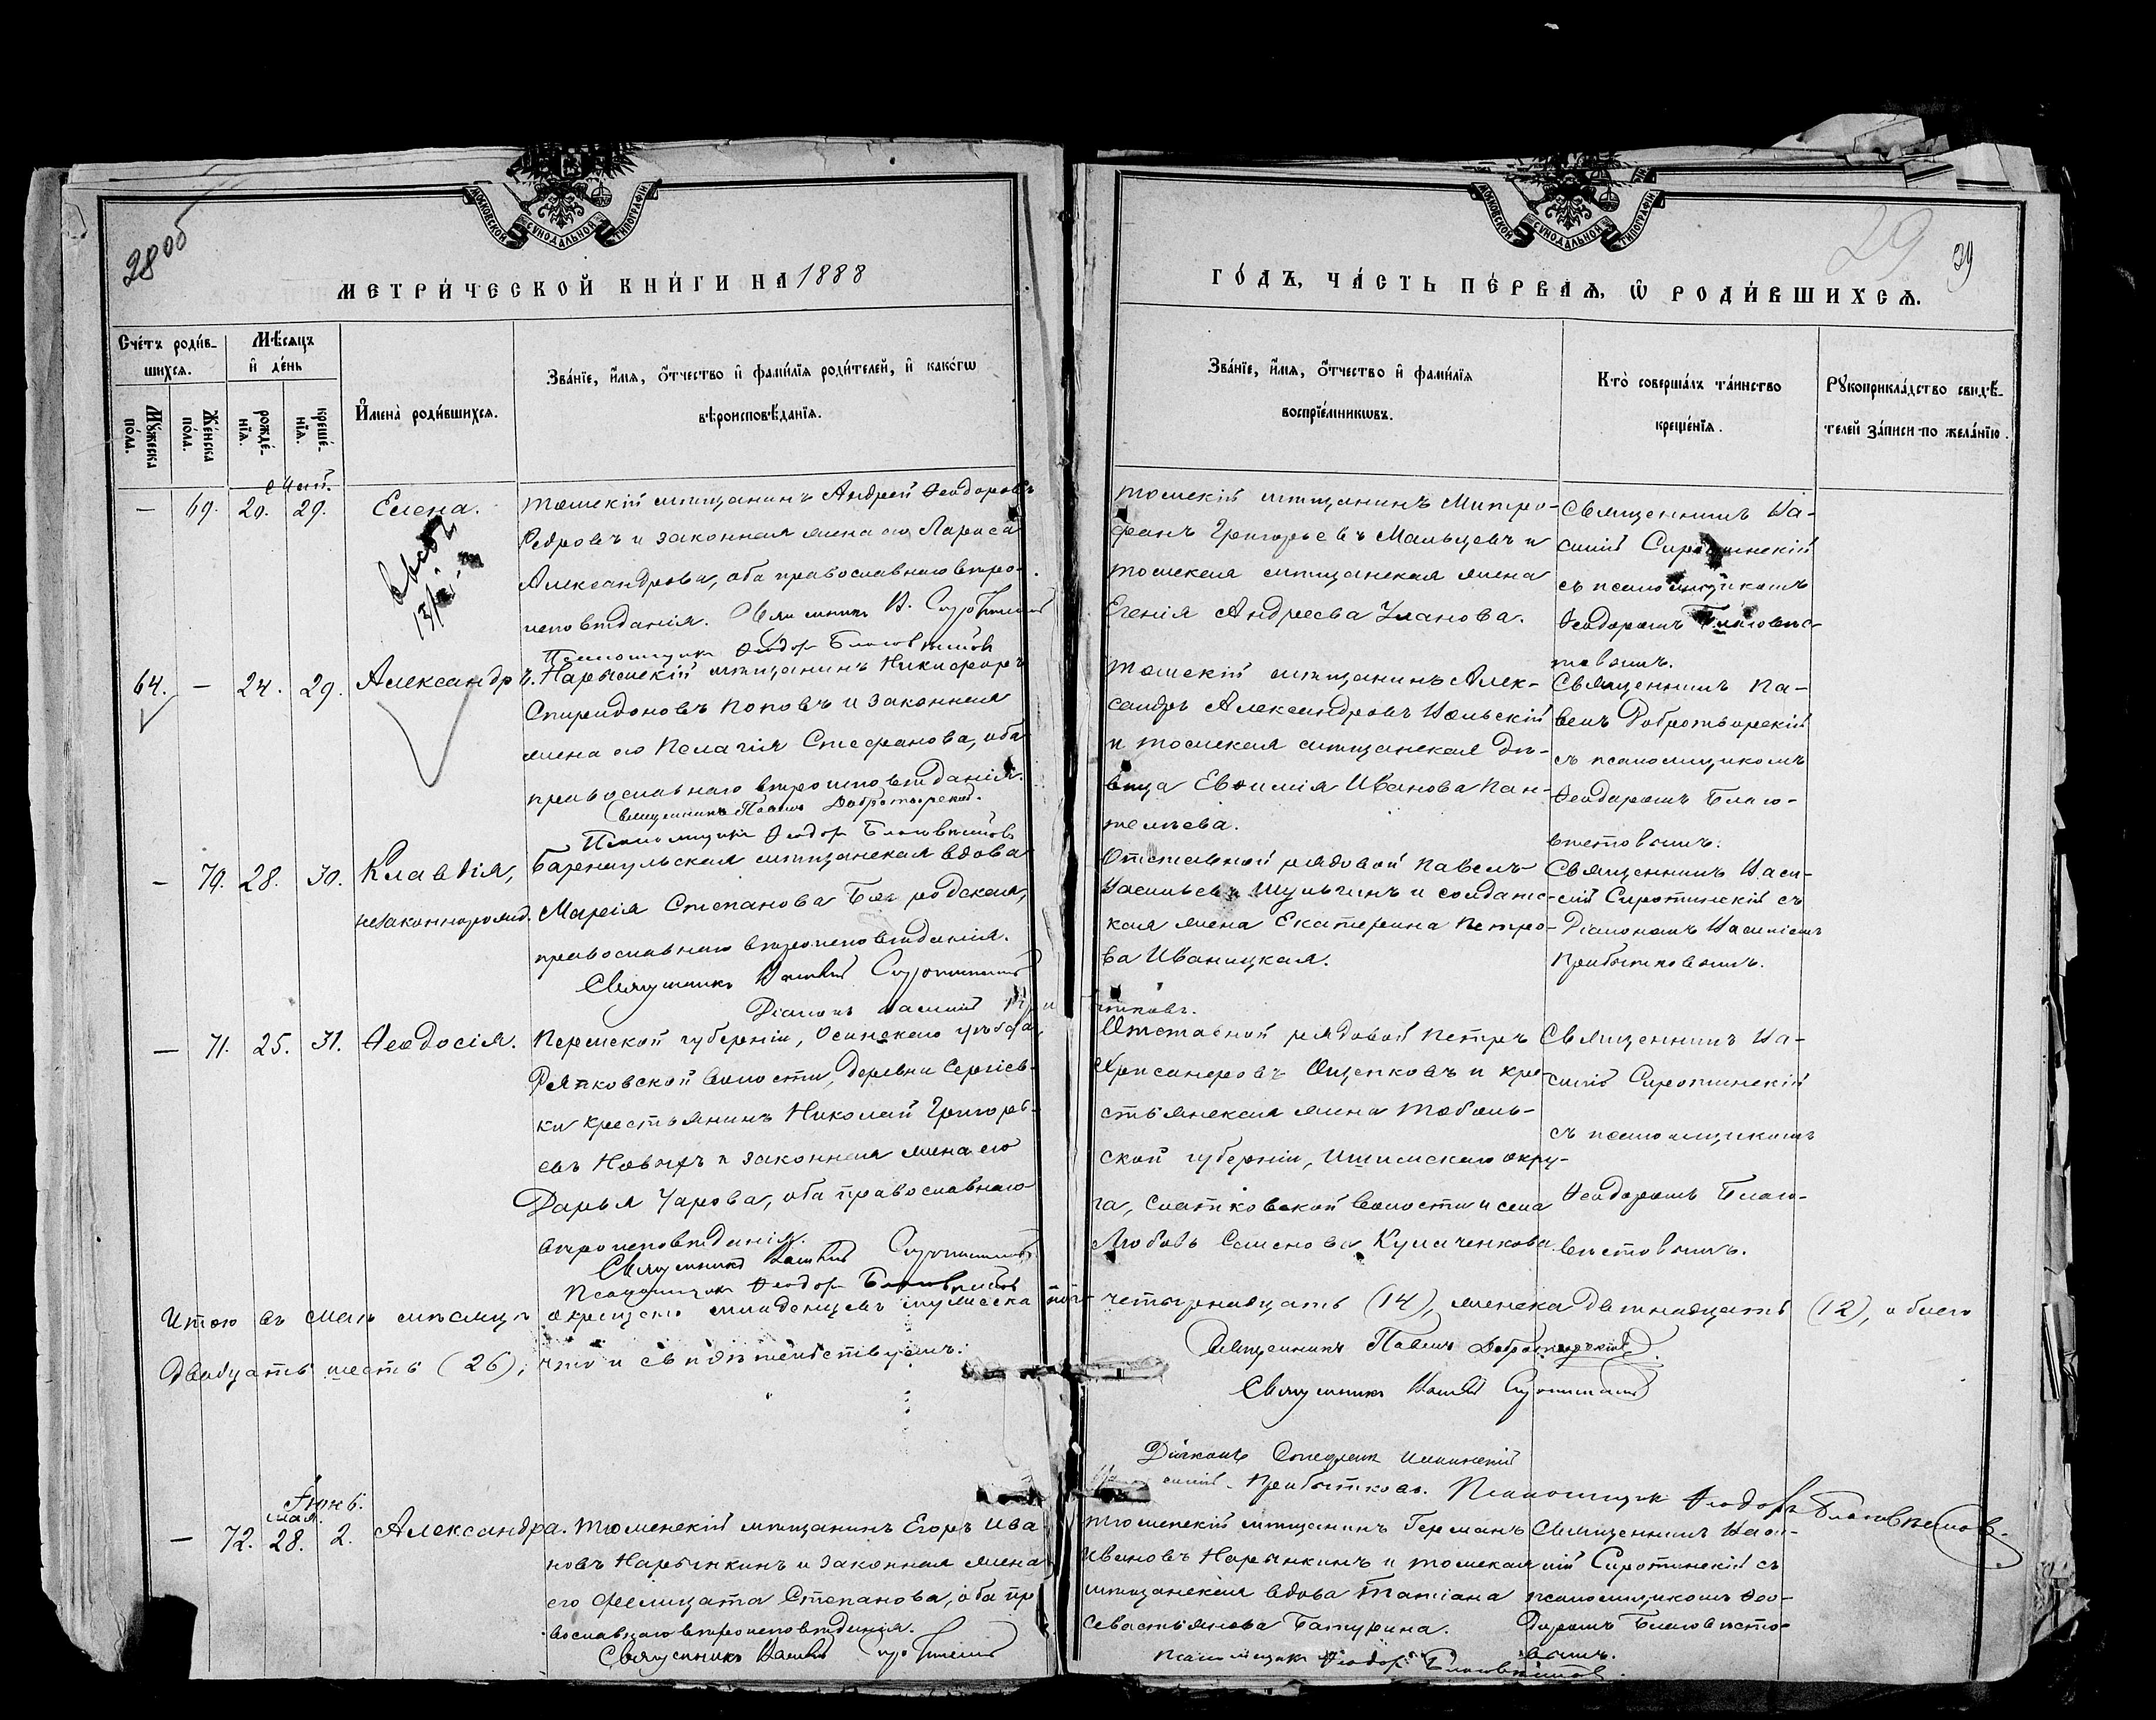 28 об
МОСКОВСКОЙ СѴНОДАЛЬНОЙ ТИПОГРАФІИ
МЕТРИ́ЧЕСКОЙ КНИ́ГИ НА 1888
Сче́тъ роди́в-
шихся.
Мѣ́сяцъ
и҆ де́нь
Му́жеска
по́ла.
Же́нска
по́ла.
рожде́-
нїя.
креще́-
нїя.
И҆мена̀ роди́вшихся.
Зва́нїе, и҆́мя, ѻ҆́тчество и҆ фами́лїя роди́телей, и҆ како́гѡ
вѣроисповѣ́данїя.
Май.
— 69. 20. 29. Елена. Томскій мѣщанинъ Андрей Ѳеодоровъ
Ѳедровъ и законная жена его Лариса
Александрова, оба православнаго вѣро-
исповѣданія. Священникъ В. Сиротинскій
Псаломщикъ Ѳеодоръ Благовѣстовъ
64. — 24. 29. Александръ. Нарымскій мѣщанинъ Никифоръ
Спиридоновъ Поповъ и законная
жена его Пелагія Стефанова, оба
православнаго вѣроисповѣданія.
Священникъ Павелъ Добротворскій.
Псаломщикъ Ѳеодоръ Благовѣстовъ
— 70. 28. 30. Клавдія, Барнаульская мѣщанская вдова
незаконнорожд. Марѳія Степанова родская,
православнаго вѣроисповѣданія.
Священникъ Василій Сиротинскій
Діаконъ Василій При
— 71. 25. 31. Ѳеодосія. Пермской губерніи, Осинскаго уѣзда,
Рябковской волости, деревни Сергіев-
ки крестьянинъ Николай Григорь-
евъ Новыхъ и законная жена его
Дарья Уарова, оба православнаго
вѣроисповѣданія.
Священникъ Василій Сиротинскій
Псаломщикъ Ѳеодоръ Благовѣстовъ
Итого въ маѣ мѣсяцѣ окрещено младенцевъ мужеска пола
двадцать шесть (26), что и свидѣтельствуемъ:
Іюнь.
мая.
— 72. 28. 2. Александра. Тюменскій мѣщанинъ Егоръ Ива
новъ Нарынкинъ и законная жена
его Фелицата Степанова, оба пр
вославнаго вѣроисповѣданія.
Священникъ Василій Сиротинскій
29
29
МОСКОВСКОЙ СѴНОДАЛЬНОЙ ТИПОГРАФІИ
ГО́ДЪ, ЧА́СТЬ ПЕ́РВАЯ, Ѽ РОДИ́ВШИХСЯ.
Зва́нїе, и҆́мя, ѻ҆́тчество и҆ фами́лїя
воспрїе́мникѡвъ.
Кто̀ соверша́лъ та́инство
креще́нїя.
Рꙋкоприкла́дство свидѣ́-
телей за́писи по жела́нїю.
Томскій мѣщанинъ Митро-
фанъ Григорьевъ Мальцевъ и
томская мѣщанская жена
Егенія Андреева Уланова.
Священникъ Ва-
силій Сиротинскій
съ псаломщикомъ
Ѳеодоромъ Благовѣс-
товымъ.
Томскій мѣщанинъ Алек-
сандръ Александровъ Вольскій
и томская мѣщанская дѣ-
вица Евѳимія Иванова Пан-
телѣева.
Священникъ Па-
велъ Добротворскій
съ псаломщикомъ
Ѳеодоромъ Благо-
вѣстовымъ.
Отставной рядовой Павелъ
Васильевъ Шульгинъ и солдатс-
кая жена Екатерина Петро-
ва Иваницкая.
Священникъ Васи-
лій Сиротинскій съ
Діакономъ Василіемъ
Прибытковымъ.
тковъ.
Отставной рядовой Петръ
Хрисанфовъ Ощепковъ и кре-
стьянская жена Тоболь-
ской губерніи, Ишимскаго окру-
га, Слатковской волости и села
Любовь Семенова Кулаченкова.
Священникъ Ва-
силій Сиротинскій
съ псаломщикомъ
Ѳеодоромъ Благо-
вѣстовымъ.
четырнадцать (14), женска двѣнадцать (12), обоего
Священникъ Павелъ Добротворскій.
Священникъ Василій Сиротинскій
Діаконъ Стефанъ
силій Прибытковъ. Псаломщикъ Ѳеодоръ Благовѣстовъ.
Тюменскій мѣщанинъ Германъ
Ивановъ Нарынкинъ и томская
мѣщанская вдова Татіана
Севастьянова Батурина.
Священникъ Васи-
лій Сиротинскій съ
псаломщикомъ Ѳео-
доромъ Благовѣсто-
вымъ.
Псаломщикъ Ѳеодоръ Благовѣстовъ.